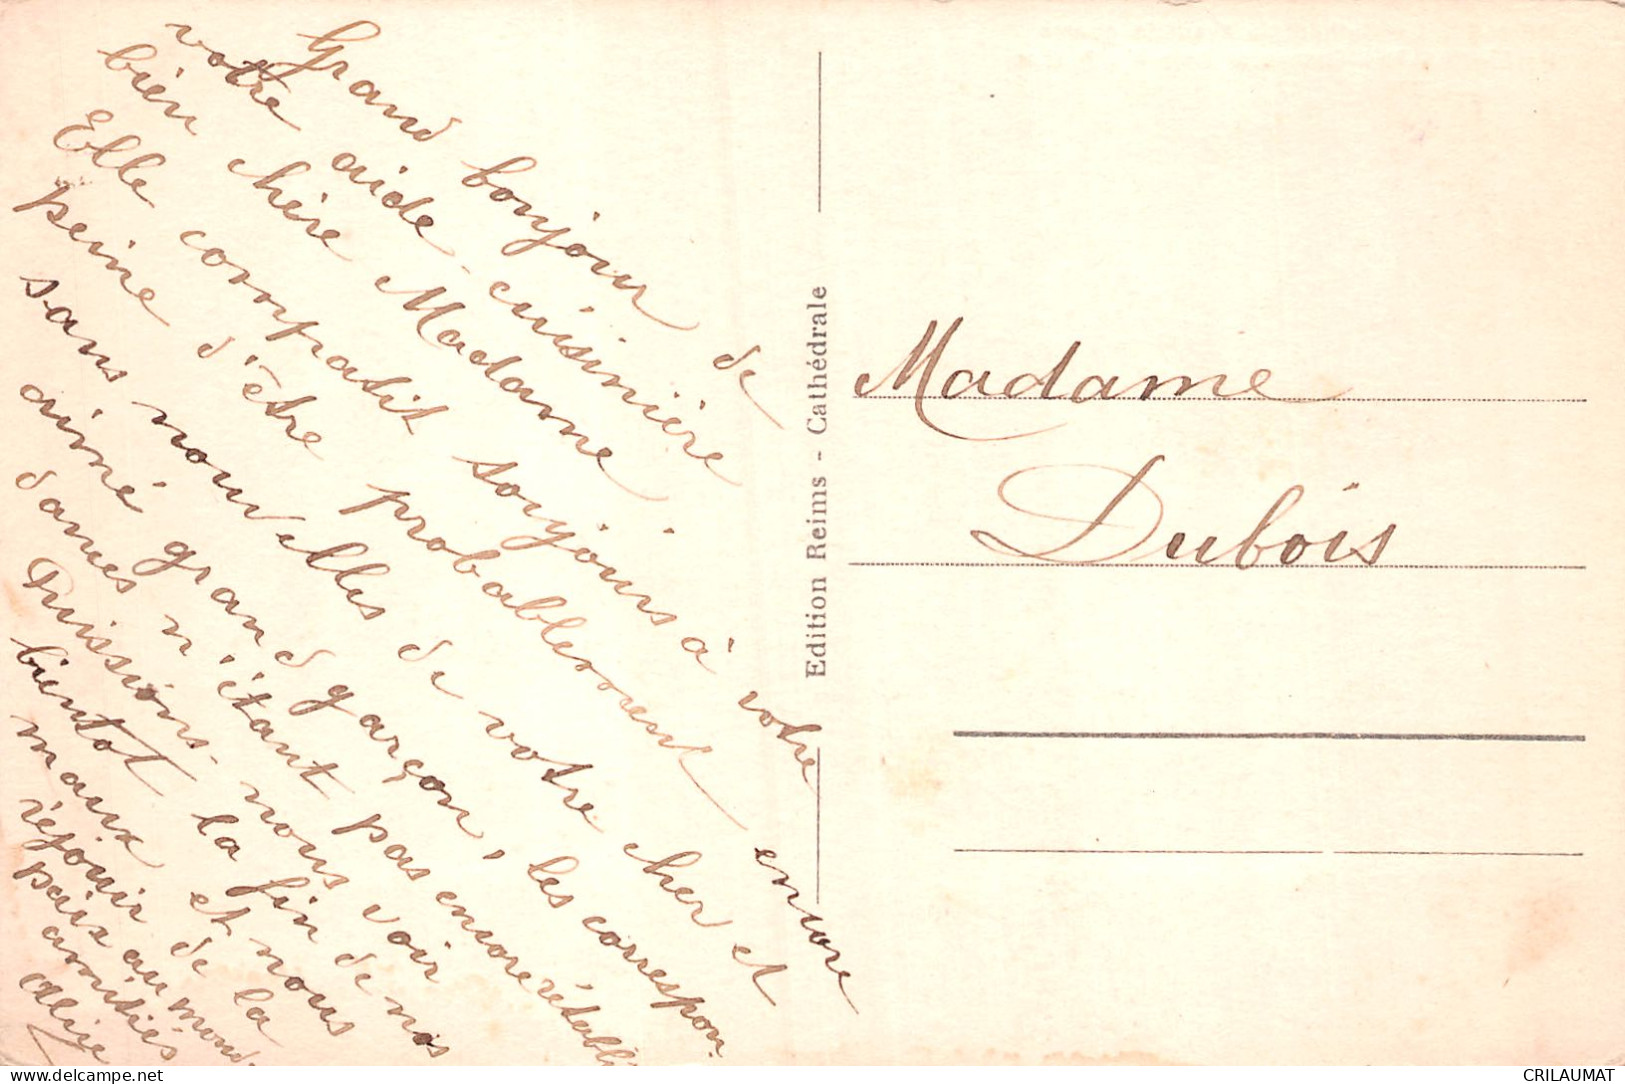 Grand bonjour de
votre aide cuisinière
bien chère Madame.
Elle compatit toujours à votre
peine d'être probablement encore
sans nouvelles de votre cher et
aimé grand garçon, les correspon.
dances n'étant pas encore rétabli
Puissions-nous voir
bientot la fin de nos
maux et nous
réjouir de la
paix au mond.
amitiés
Edition Reims - Cathédrale
Madame
Dubois
CRILAUMAT